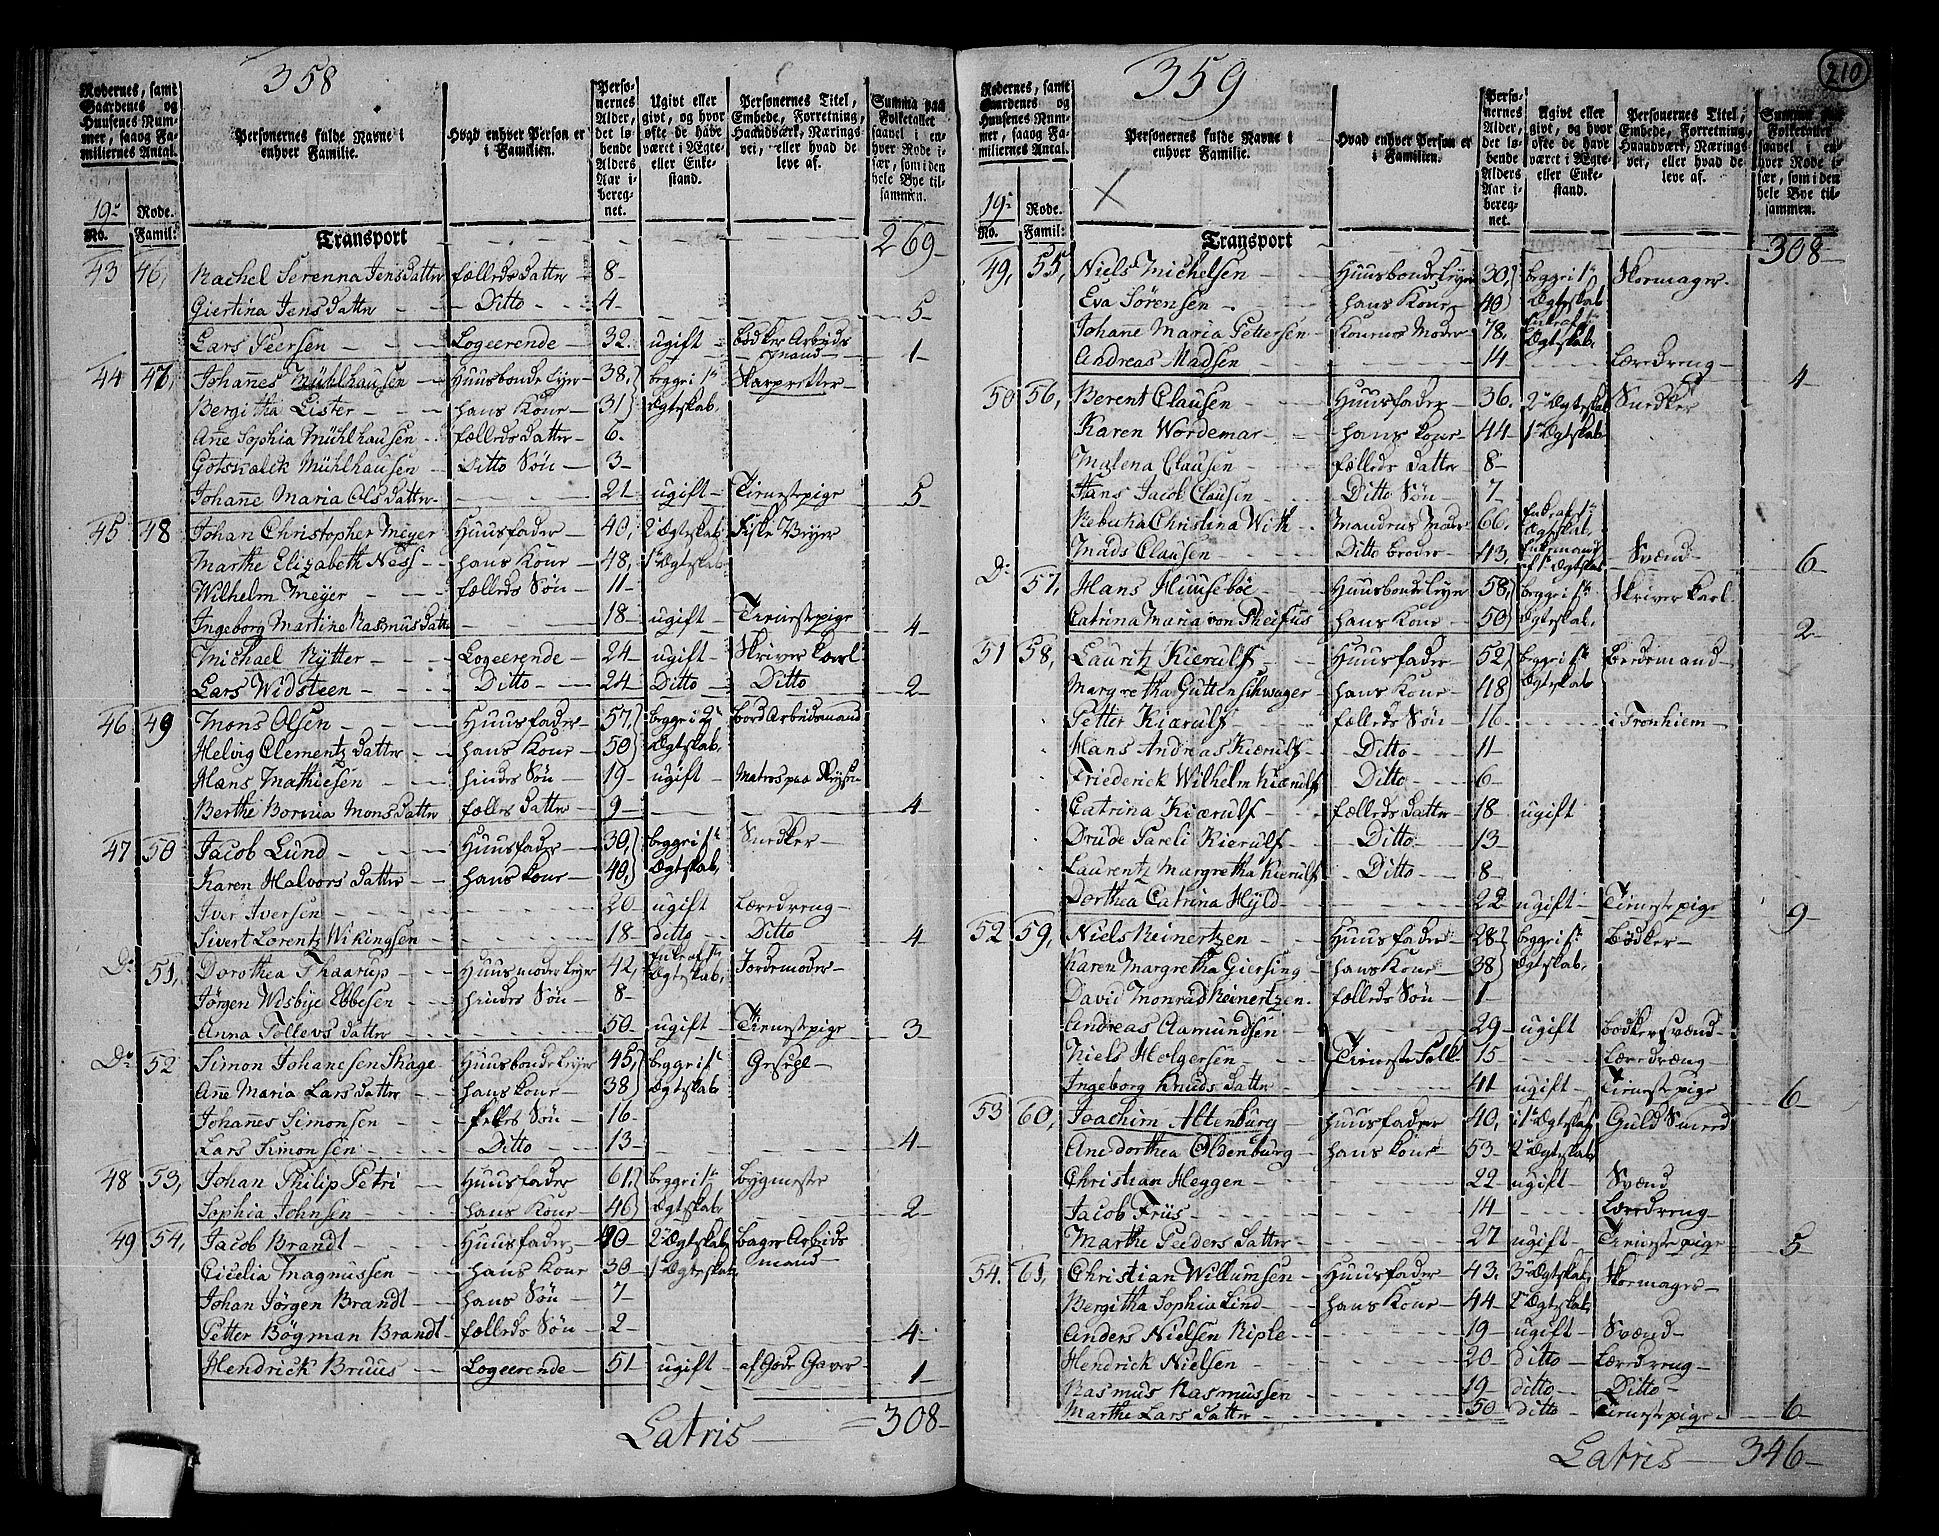 358
Rodernes, samt Gaardenes og Huusenes Nummer, saaog Familiernes Antal.
Personernes fulde Navne i enhver Familie.
Hvad enhver Person er i Familien.
Personernes Alder, det løbende Alders Aar iberegnet.
Ugivt eller givt, og hvor ofte de have været i Ægte- eller Enkestand.
Personernes Titel, Embede, Forretning, Haandværk, Næringsvei, eller hvad de leve af.
Summa paa Folketallet saavel i enhver Rode især, som i den hele Bye tilsammen.
19de Rode.
No. Famil:
Transport 269
43 46, Rachel Serenna Jensdatter fælleds datter 8
Giertina Jens datter Ditto 4 5
Lars Peersen Logeerende 32. ugift Bødker Arbeids mand 1
44 47, Johañes Mühlhausen Huusbonde Leyer 38, begge i 1te Skarpretter
Bergitha Lister hans Kone 31 Ægteskab,
Añe Sophia Mühlhausen fælleds datter 6.
Gotswalck Mühlhausen Ditto Søn 3
Johañe Maria Ols datter 21 ugift Tienestepige 5
45 48 Johan Christopher Meyer Huusfader 40, 2det Ægteskab, Fiske Veyer
Marthe Elizabeth Ness hans Kone 48, 1te Ægteskab
Wilhelm Meyer fælleds Søn 11
Ingeborg Martine Rasmusdatter 18 ugift Tienestepige 4
Michael Rytter Logeerende 24 ugift Skriver Karl
Lars Widsteen Ditto 24 Ditto Ditto 2
46 49 Mons Olsen Huusfader 57, begge i 2det bord Arbeidsmand
Helvig Clementz datter hans Kone 50 Ægteskab,
Hans Mathiesen hindes Søn 19 ugift Matros paa Reysen
Berthe Bornia Monsdatter fælles datter 9 4
47 50 Jacob Lund Huusfader 39, begge i 1te Snedker
Karen Halvors datter hans kone 40, Ægteskab,
Iver Iversen 20 ugift Læredreng
Sivert Lorentz Wikingsen 18 ditto Ditto 4
Do 51, Dorothea Thaarup Huusmoder Leyer 42, Enke af 1te Ægteskab, Jordemoder
Jørgen Wisbye Ebbesen hindes Søn 8
Anna Tollevs datter 50 ugift Tienestepige 3
Do 52 Simon Johanesen Skage Huusbonde Leyer 45, begge i 1te Gesel
Añe Maria Lars datter hans kone 38 Ægteskab
Johañes Simonsen felles Søn 16
Lars Simonsen Ditto 13 4
48 53, Johan Philip Petri Huusfader 61, begge i 1te bygmester
Sophia Johnsen hans Kone 46 Ægteskab 2
49 54, Jacob Brandt Huusfader 40 2det Ægteskab Bager Arbeids mand
Cicelia Magnussen hans Kone 30 1te Ægteskab
Johan Jörgen Brandt hans Søn 7
Petter Bøgman Brandt fælleds Søn 2 4
Hendrick Bruus Logeerende 51 ugift af Gode Gaver 1
Latris 308
359
210
Rodernes, samt Gaardenes og Huusenes Nummer, saaog Familiernes Antal.
Personernes fulde Navne i enhver Familie.
Hvad enhver Person er i Familien.
Personernes Alder, det løbende Alders Aar iberegnet.
Ugivt eller givt, og hvor ofte de have været i Ægte- eller Enkestand.
Personernes Titel, Embede, Forretning, Haandværk, Næringsvei, eller hvad de leve af.
Summa paa Folketallet saavel i enhver Rode især, som i den hele Bye tilsammen.
19de Rode.
No. Famil:
Transport 308
49, 55, Niels Michelsen Huusbonde Leyer 30, begge i 1te Skormager
Eva Sørensen hans Kone 40 Ægteskab
Johane Maria Pettersen Konens Moder 78, Enke af 1te Ægteskab,
Andreas Madsen 14 Læredreng 4
50 56, Berent Clausen Huusfader 36. 2det Ægteskab Snedker
Karen Wordemar hans kone 44 1te Ægteskab
Malena Clausen fælleds datter 8
Hans Jacob Clausen Ditto Søn 7
Rebecka Christina With Mandens Moder 66, Enke af 1te Ægteskab,
Mads Clausen Ditto broder 43, Enkemand af 1te Ægteskab Svend 6
Do 57, Hans Huuseböe Huusbonde Leyer 58, begge i 1te Skriver Karl
Catrina Maria von Theifus hans Kone 50 Ægteskab, 2
51 58, Lauritz Kierulf Huusfader 52 begge i 1te bedemand
Margretha Guttenschwager hans Kone 48 Ægteskab
Petter Kierulf fælleds Søn 16 i Tronhiem
Hans Andreas Kierulf Ditto 11
Friederick Wilhelm Kierulf Ditto 6
Catrina Kierulf fælleds datter 18 ugift
Drude Pareli Kierulf Ditto 13
Laurentz Margretha Kierulf Ditto 8
Dorthea Catrina Hyld 22 ugift Tienestepige 9
52 59, Niels Reinertzen Huusfader 28 begge i 1te Bödker
Karen Margretha Giersing hans Kone 38 Ægteskab,
David Monrad Reinertzen fælleds Søn 1
Andreas Aamundsen 29 ugift bödkersvend
Niels Holgersen Tieneste Folk 15 Læredræng
Ingeborg Knuds datter 41 ugift Tienestepige 6
53 60, Joachim Altenburg huusfader 40, i 1te Ægteskab Guld Smed
Ane dorthea Oldenburg hans kone 53 2det Ægteskab
Christian Heggen 22 ugift Svend
Jacob Friis 14 Læredreng
Marthe Peders datter 27 ugift Tienestepige 5
54. 61, Christian Willumsen Huusfader 43. 3de Ægteskab, Skormager
Bergitha Sophia Lind hans Kone 44 2det Ægteskab,
Anders Nielsen Riple 19 ugift Svend
Hendrick Nielsen 20 ditto Læredreng
Rasmus Rasmussen 19 ditto Ditto
Marthe Lars datter 50 ditto Tienestepige 6
Latris 346